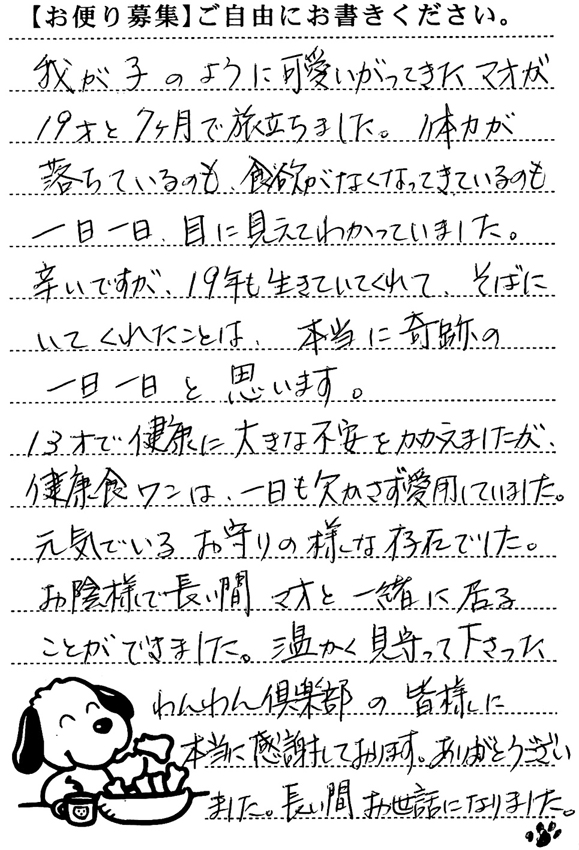 【お便り募集】ご自由にお書きください。
我が子のように可愛いがってきたマオが
19才と7ヶ月で旅立ちました。体力が
落ちているのも、食欲がなくなってきているのも
一日一日、目に見えてわかっていました。
辛いですが、19年も生きていてくれて、そばに
いてくれたことは、本当に奇跡の
一日一日と思います。
13才で健康に大きな不安をかかえましたが、
健康食ワンは、一日も欠かさず愛用していました。
元気でいるお守りの様な存在でした。
お陰様で長い間マオと一緒に居る
ことができました。温かく見守って下さった
わんわん倶楽部の皆様に
本当に感謝しております。ありがとうござい
ました。長い間お世話になりました。